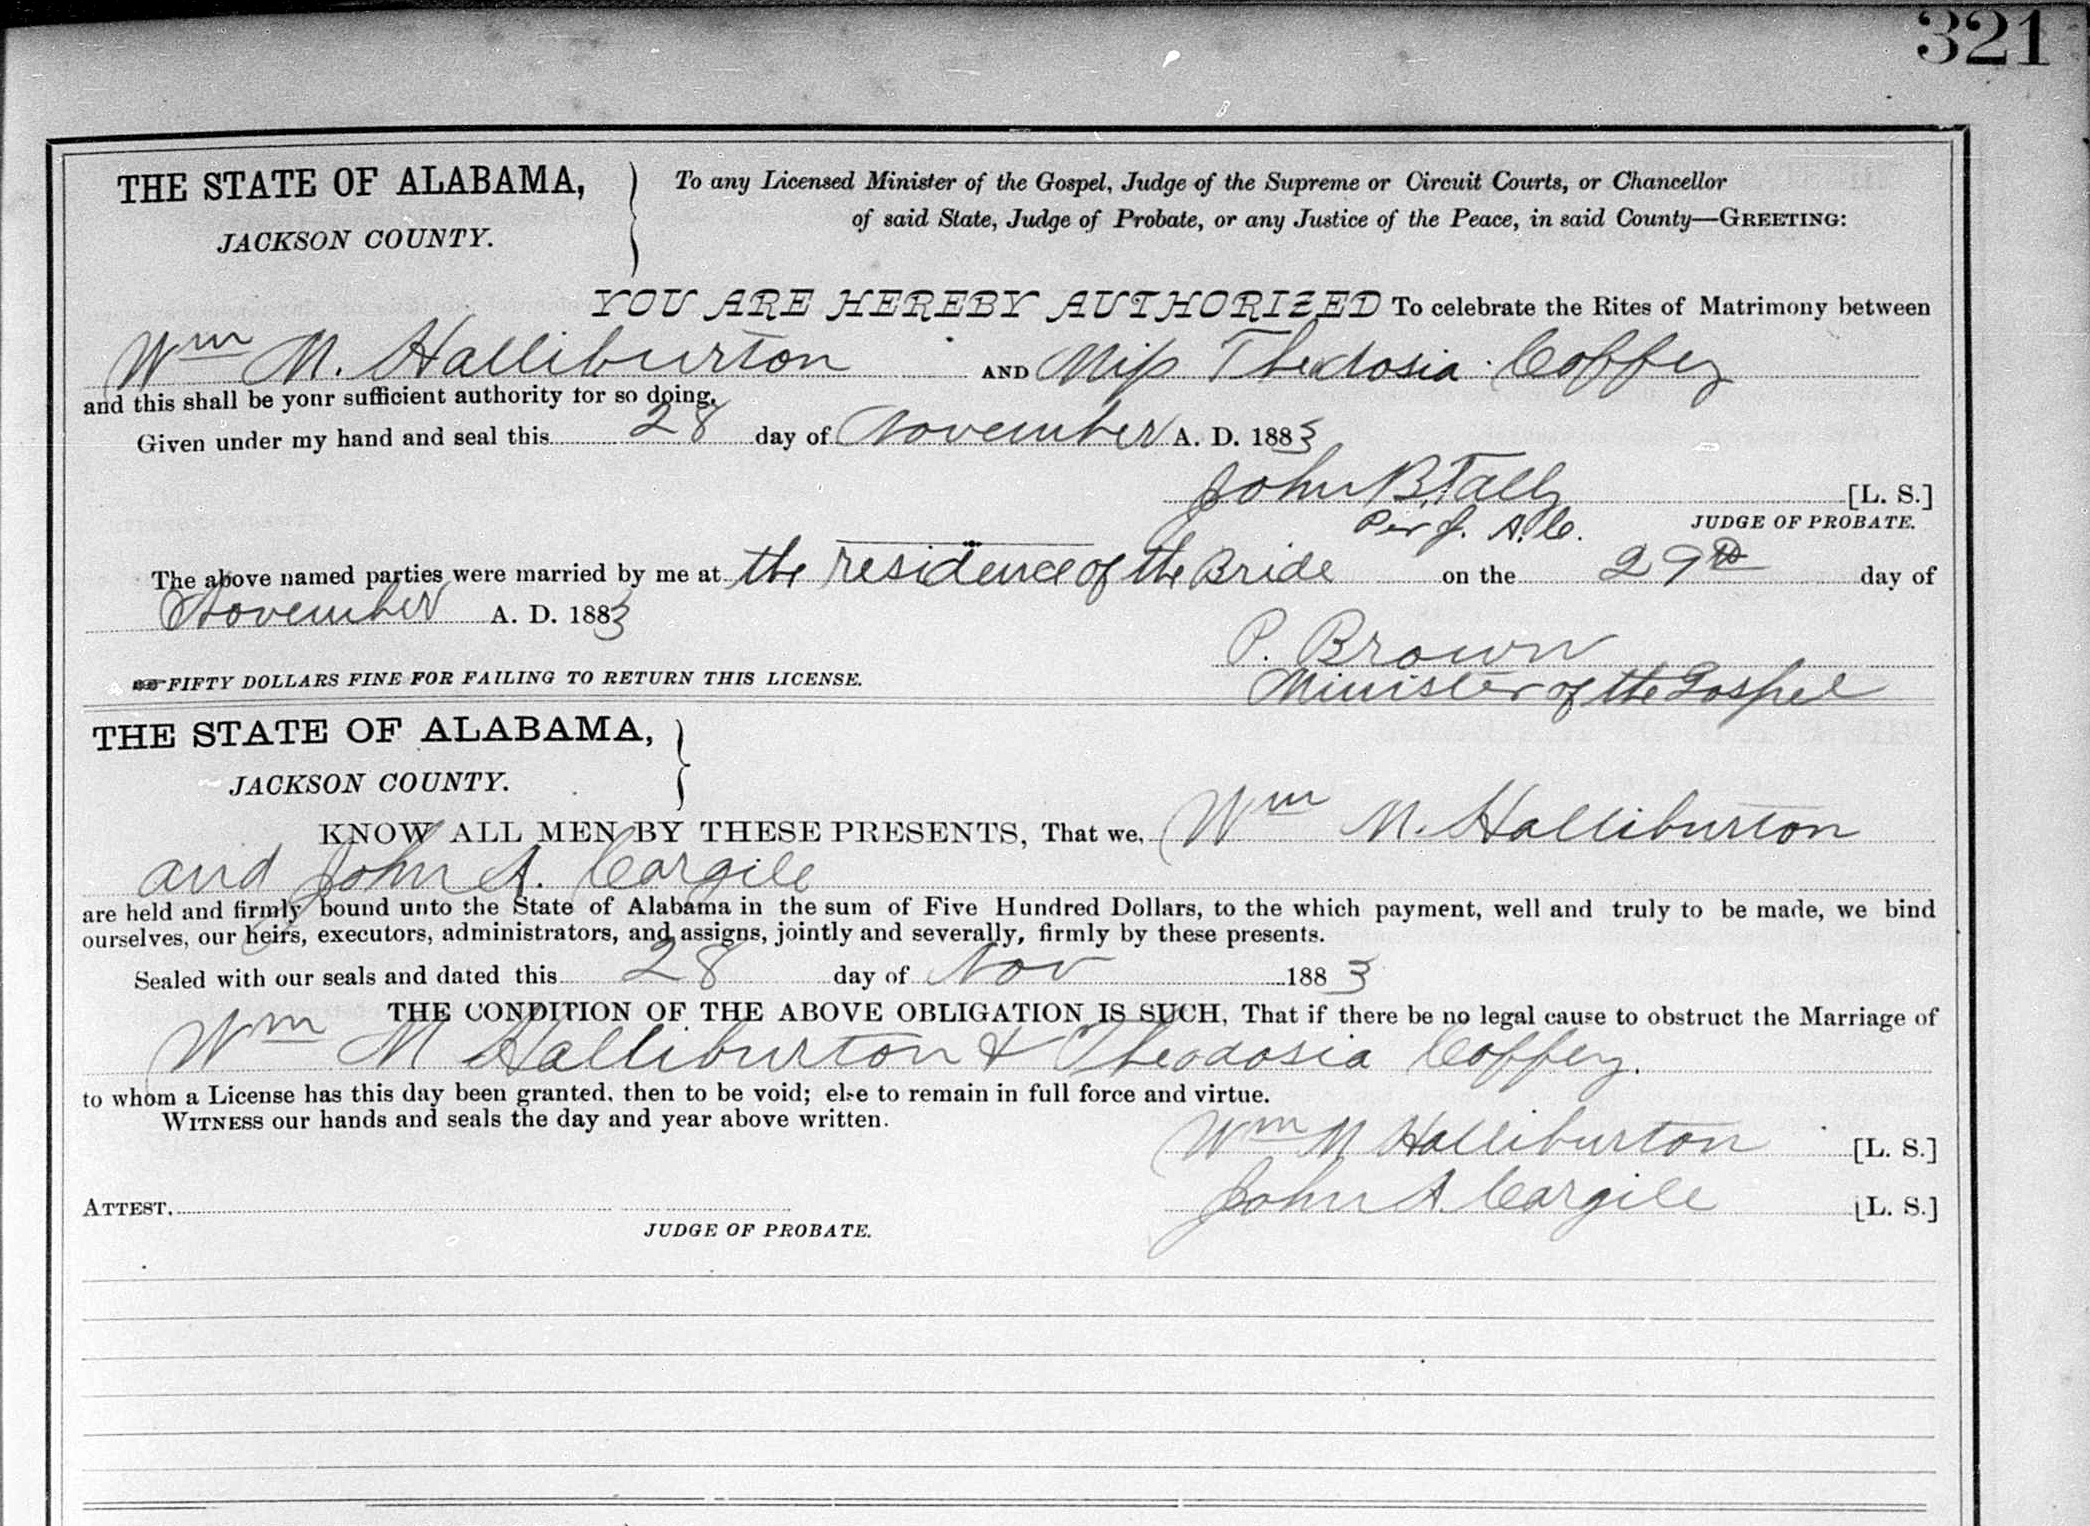 321
THE STATE OF ALABAMA,
JACKSON COUNTY.
To any Licensed Minister of the Gospel, Judge of the Supreme or Circuit Courts, or Chancellor
of said State, Judge of Probate, or any Justice of the Peace, in said County—GREETING:
YOU ARE HEREBY AUTHORIZED To celebrate the Rites of Matrimony between
Wm M. Halliburton AND Miss Theodosia Coffey
and this shall be your sufficient authority for so doing.
Given under my hand and seal this 28 day of November A. D. 1883
John B. Tally [L. S.]
Per J. A. C. JUDGE OF PROBATE.
The above named parties were married by me at the residence of the Bride on the 29th day of
November A. D. 1883
P. Brown
FIFTY DOLLARS FINE FOR FAILING TO RETURN THIS LICENSE. Minister of the Gospel
THE STATE OF ALABAMA,
JACKSON COUNTY.
KNOW ALL MEN BY THESE PRESENTS, That we, Wm M. Halliburton
and John A. Cargile
are held and firmly bound unto the State of Alabama in the sum of Five Hundred Dollars, to the which payment, well and truly to be made, we bind
ourselves, our heirs, executors, administrators, and assigns, jointly and severally, firmly by these presents.
Sealed with our seals and dated this 28 day of Nov 1883
THE CONDITION OF THE ABOVE OBLIGATION IS SUCH, That if there be no legal cause to obstruct the Marriage of
Wm M Halliburton & Theodosia Coffey.
to whom a License has this day been granted, then to be void; else to remain in full force and virtue.
WITNESS our hands and seals the day and year above written.
Wm M Halliburton [L. S.]
John A Cargile [L. S.]
ATTEST,
JUDGE OF PROBATE.